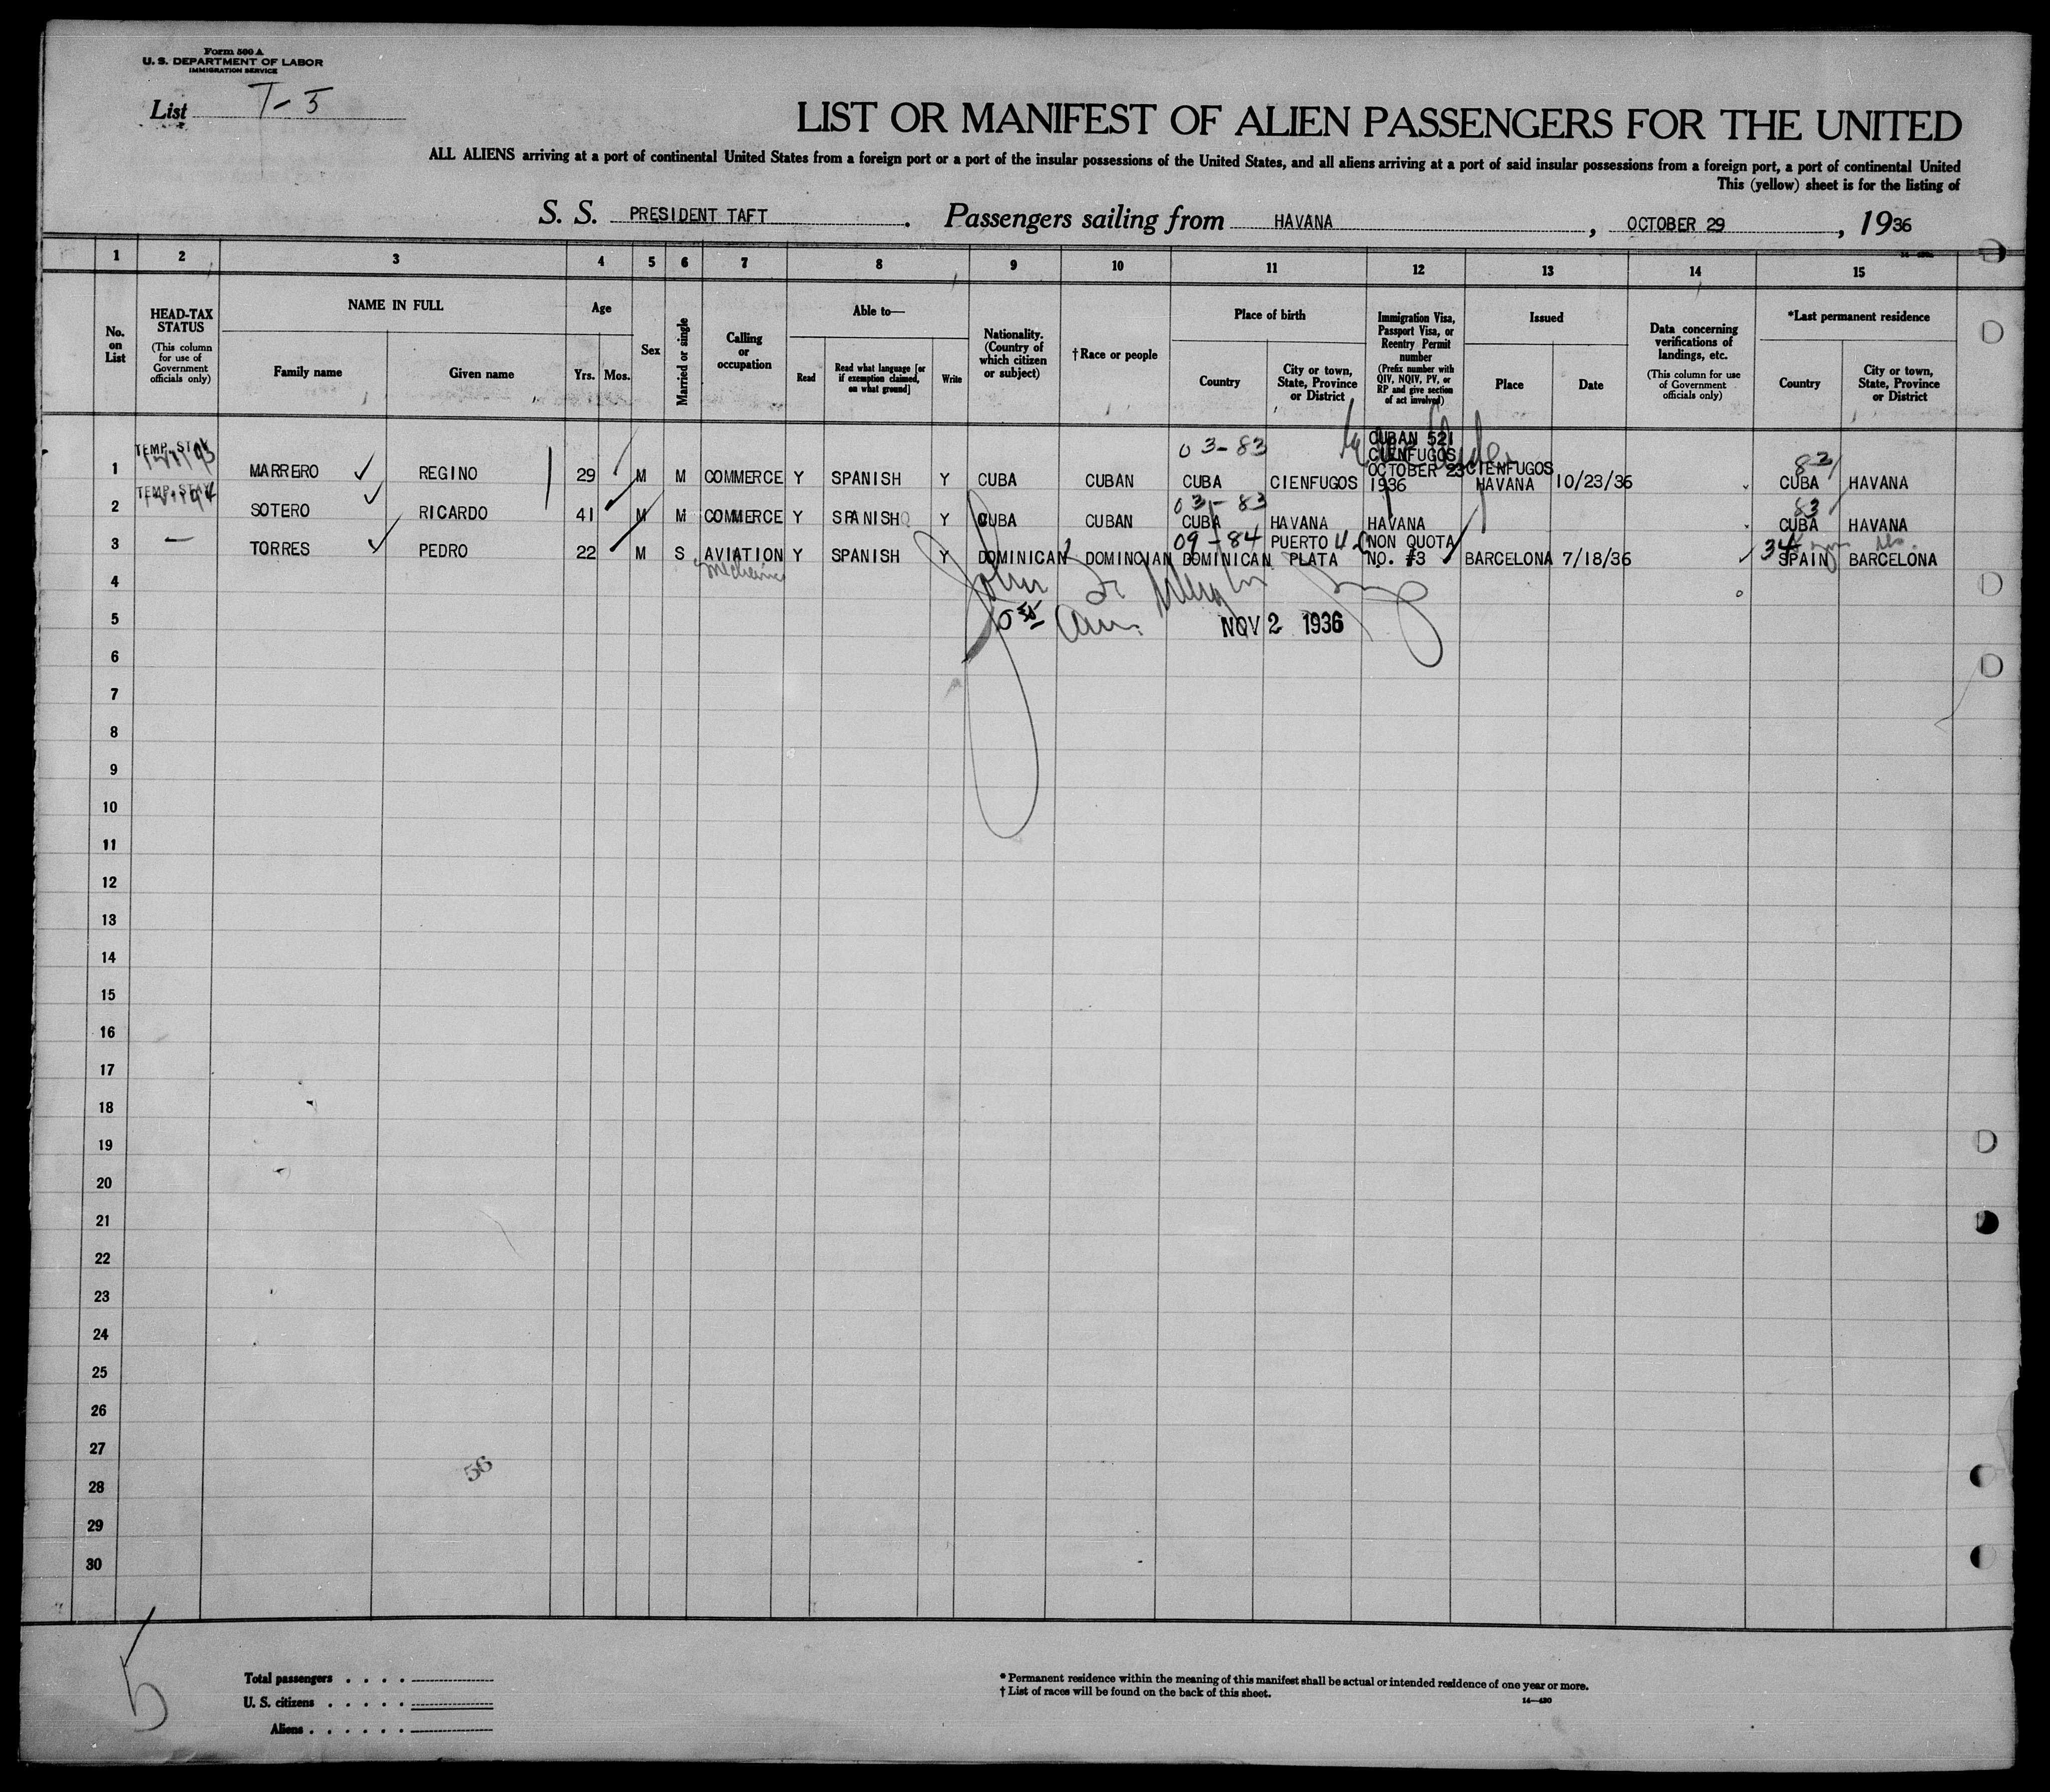 Form 500 A
U. S. DEPARTMENT OF LABOR
IMMIGRATION SERVICE
List T-5
LIST OR MANIFEST OF ALIEN PASSENGERS FOR THE UNITED
ALL ALIENS arriving at a port of continental United States from a foreign port or a port of the insular possessions of the United States, and all aliens arriving at a port of said insular possessions from a foreign port, a port of continental United
This (yellow) sheet is for the listing of
S. S. PRESIDENT TAFT. Passengers sailing from HAVANA, OCTOBER 29, 1936
1 2 3 4 5 6 7 8 9 10 11 12 13 14 15
No. on List
HEAD-TAX STATUS
(This column for use of Government officials only)
NAME IN FULL
Family name
Given name
Age
Yrs. Mos.
Sex
Married or single
Calling or occupation
Able to—
Read
Read what language [or if exemption claimed, on what ground]
Write
Nationality. (Country of which citizen or subject)
† Race or people
Place of birth
Country
City or town, State, Province or District
Immigration Visa, Passport Visa, or Reentry Permit number
(Prefix number with QIV, NQIV, PV, or RP and give section of act involved)
Issued
Place
Date
Data concerning verifications of landings, etc.
(This column for use of Government officials only)
*Last permanent residence
Country
City or town, State, Province or District
TEMP. STAY 03-83 CUBAN 521
CIENFUGOS 83
1 MARREIRO REGINO 29 M M COMMERCE Y SPANISH Y CUBA CUBAN CUBA CIENFUGOS OCTOBER 23 1936 CIENFUGOS HAVANA 10/23/36 CUBA HAVANA
TEMP. STAY 03-83 83
2 SOTERO RICARDO 41 M M COMMERCE Y SPANISH Y CUBA CUBAN CUBA HAVANA HAVANA CUBA HAVANA
09-84 34
3 — TORRES PEDRO 22 M S AVIATION Y SPANISH Y DOMINICAN DOMINCIAN DOMINICAN PUERTO PLATA NON QUOTA NO. #3 BARCELONA 7/18/36 SPAIN BARCELONA
mechanic
4
5 NOV 2 1936
6
7
8
9
10
11
12
13
14
15
16
17
18
19
20
21
22
23
24
25
26
27
56
28
29
30
5
Total passengers . . . .
U. S. citizens . . . . .
Aliens . . . . . .
* Permanent residence within the meaning of this manifest shall be actual or intended residence of one year or more.
† List of races will be found on the back of this sheet.
14—430